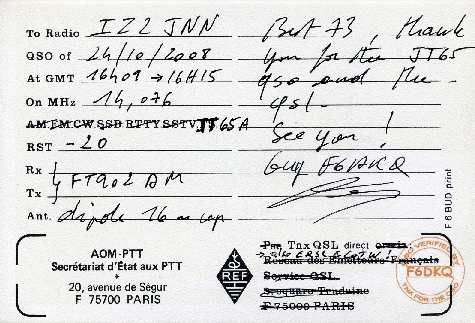 To Radio IZ2JNN
QSO of 24/10/2008
At GMT 16H09 → 16H15
On MHz 14,076
AM FM CW SSB RTTY SSTV JT65A
RST -20
Rx
Tx FT902 DM
Ant. dipole 16 m up
Best 73, thank
you for the JT65
qso and the
qsl.
See you!
Guy F6DKQ
F 6 BUD print
AOM-PTT
Secrétariat d'État aux PTT
*
20, avenue de Ségur
F 75700 PARIS
REF
Pse, Tnx QSL direct or via
Réseau des Émetteurs Français
Service QSL
F 75000 PARIS
VERIFIED BY
F6DKQ
TNX FOR THE